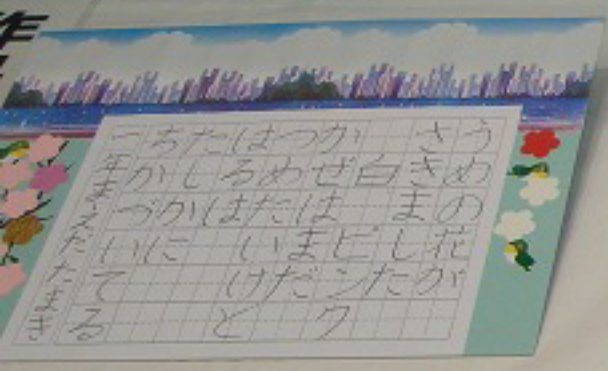 うめの花が
さきました
白 ピンク
かぜはまだ
つめたいけど
はるは
たしかに
ちかづいてる
一年 まえだ たまき